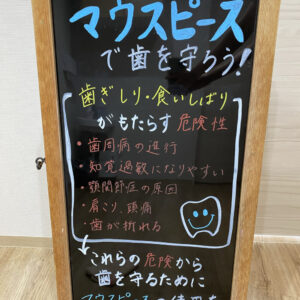 マウスピース
で歯を守ろう!
歯ぎしり・食いしばり
がもたらす危険性
・歯周病の進行
・知覚過敏になりやすい
・顎関節症の原因
・肩こり、頭痛
・歯が折れる
これらの危険から
歯を守るために
マウスピースの使用を